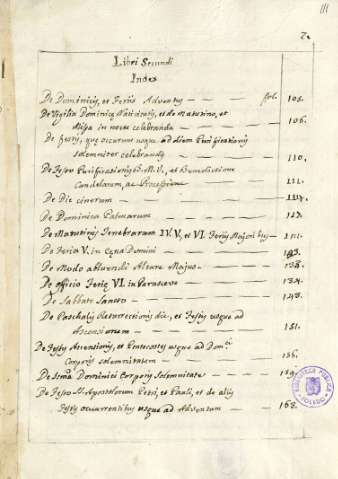 2.
Libri Secundi
Index
De Dominicis, et Feriis Adventus — fol. 105.
De Vigilia Dominicę Nativitatis, et de Matutino, et
Missa in nocte celebranda — 106.
De festis, quę occurunt usque ad diem Purificationis
solemniter celebrandis — 110.
De Festo Purificationis B. M. V., et Benedictione
Candelarum, ac Processione — 111.
De Die cinerum —
De Dominica Palmarum —
De Matutinis Tenebrarum IV. V, et VI. Feriis Majoris —
De Feria V. in Cęna Domini —
De Modo abluendi Altare Majus — 138.
De officio Ferię VI. in Parasceve — 134.
De Sabbato Sancto — 143.
De Paschalis Resurrectionis die, et Festis usque ad
Ascensionem — 151.
De Festis Ascensionis, et Pentecostes usque ad Domci
Corporis solemnitatem — 156.
De Dominici Corporis Solemnitate — 159.
De Festo SS. Apostolorum Petri, et Pauli, et de aliis
Festis occurrentibus usque ad Adventum — 168.
BIBLIOTECA PUBLICA
TOLEDO